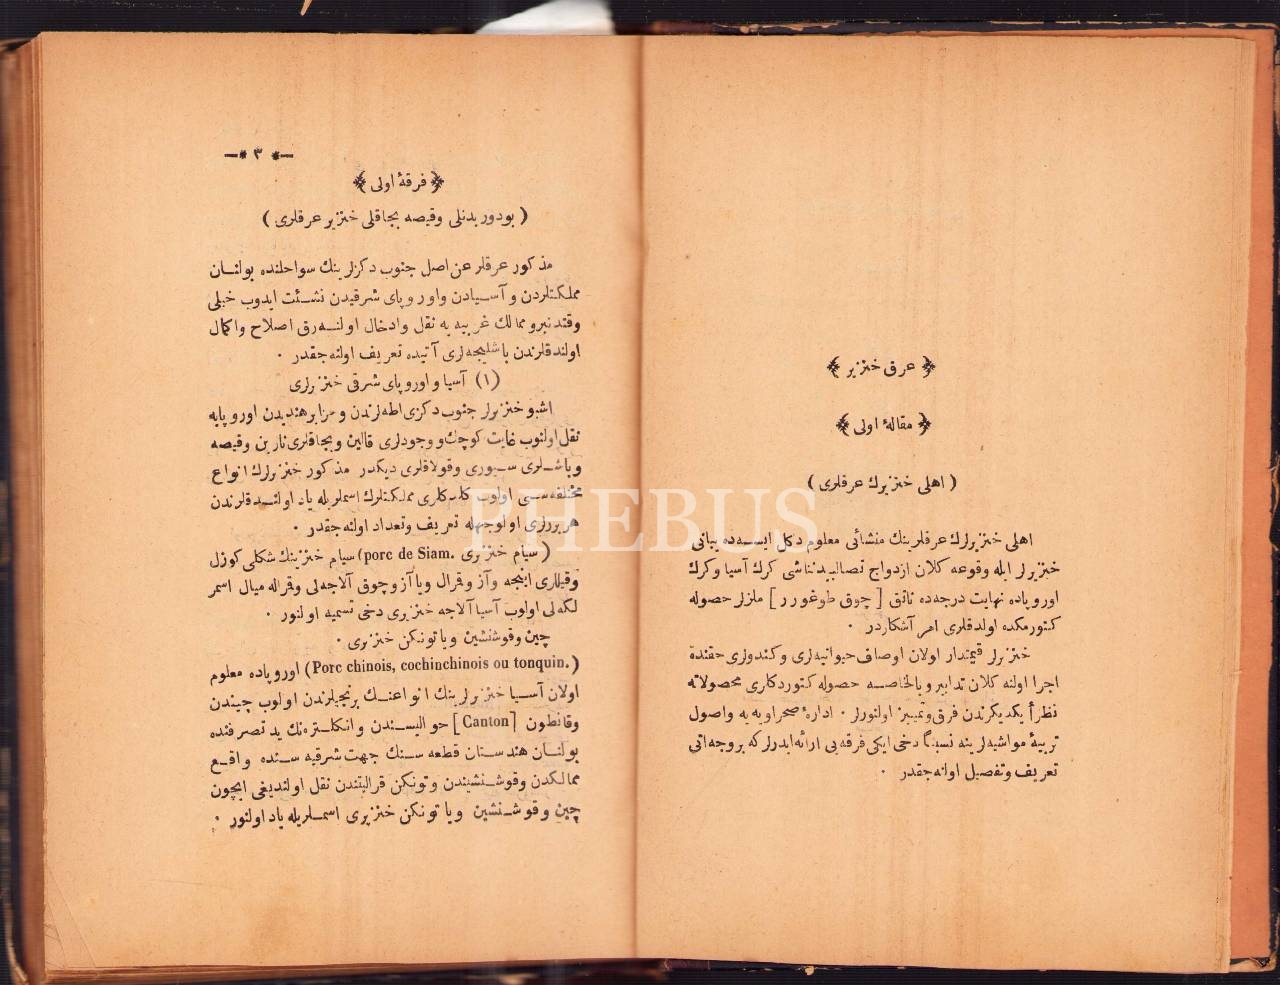 ﴿ عرق خنزير ﴾
﴿ مقالۀ اولى ﴾
( اهلى خنزيرك عرقلرى )
اهلى خنزيرلرك عرقلرينك منشائى معلوم دكل ايسه ده يبانى
خنزيرلر ايله وقوعه كلان ازدواج تصالبيدن ناشى كرك آسيا وكرك
اوروپاده نهايت درجه ده ناتق [ چوق طوغورر ] ملزلر حصوله
كتورمكده اولدقلرى امر آشكاردر ·
خنزيرلر قيمتدار اولان اوصاف حيوانيه لرى وكندولرى حقنده
اجرا اولنه كلان تدابير وبالخاصه حصوله كتوردكلرى محصولاته
نظراً يكديكرندن فرق وتمييز اولنورلر · ادارۀ صحراويه يه واصول
تربيۀ مواشيه لرينه نسبتاً دخى ايكى فرقه يى ارائه ايدرلركه بروجه آتى
تعريف وتفصيل اولنه جقدر ·
—* ٣ *—
﴿ فرقۀ اولى ﴾
( بودور بدنلى وقيصه بجاقلى خنزير عرقلرى )
مذكور عرقلر عن اصل جنوب دكزلرينك سواحلنده بولنان
مملكتلردن و آسيادن واوروپاى شرقيدن نشئت ايدوب خيلى
وقتدنبرو ممالك غربيه يه نقل وادخال اولنه رق اصلاح واكمال
اولندقلرندن باشليجه لرى آتيده تعريف اولنه جقدر ·
(١) آسيا و اوروپاى شرقى خنزيرلرى
اشبو خنزيرلر جنوب دكزى اطه لرندن و جزاير هنديدن اوروپايه
نقل اولنوب غايت كوچك و وجودلرى قالين و بجاقلرى نارين وقيصه
وباشلرى سيورى وقولاقلرى ديكدر مذكور خنزيرلرك انواع
مختلفه سى اولوب كلدكلرى مملكتلرك اسملريله ياد اولندقلرندن
هر برلرى اولوجهله تعريف وتعداد اولنه جقدر ·
( سيام خنزيرى porc de Siam.) سيام خنزيرينك شكلى كوزل
وقيللرى اينجه وآز و قرال ويا آز وچوق آلاجه لى وقراله ميال اسمر
لكه لى اولوب آسيا آلاجه خنزيرى دخى تسميه اولنور ·
چين وقوشنشين ويا تونكن خنزيرى ·
(Porc chinois, cochinchinois ou tonquin.) اوروپاده معلوم
اولان آسيا خنزيرلرينك انواعنك برنجيلرندن اولوب چيندن
وقانطون [Canton] حواليسندن و انكلتره نك يد تصرفنده
بولنان هندستان قطعه سنك جهت شرقيه سنده واقع
ممالكدن وقوشنشيندن وتونكن قرالیتندن نقل اولنديغى ايچون
چين و قوشنشين ويا تونكن خنزيرى اسملريله ياد اولنور ·
PHEBUS